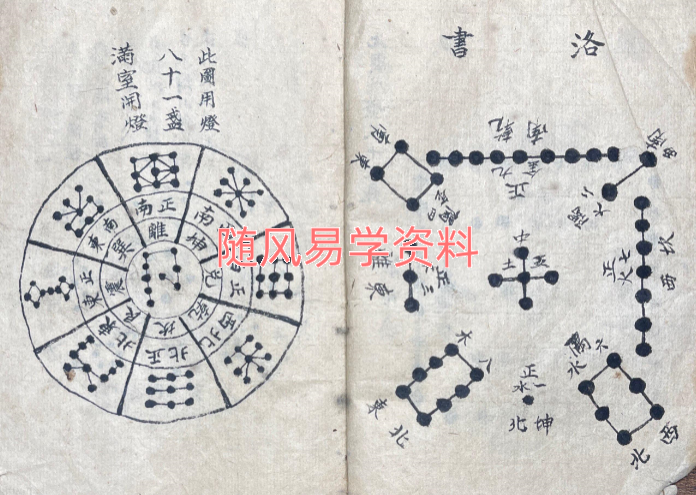 洛書
正九金
南乾
東南
西南
正七火
西坎
中五土
正三
東離
正一水
坤北
八木
東北
六水
西北
此圖用燈
八十一盞
滿室開燈
正南
離
坤
兌
西北
乾
正北
坎
東北
艮
正東
震
東南
巽
随风易学资料